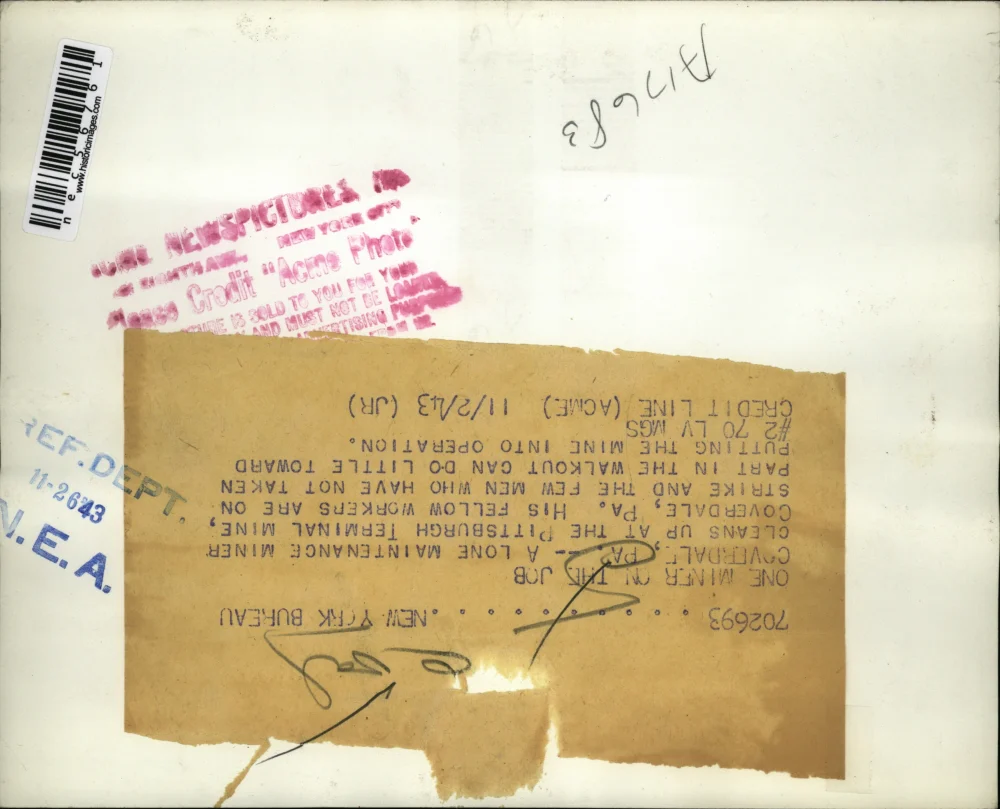 702693 . . . . . . . . . . . NEW YORK BUREAU
ONE MINER ON THE JOB
COVERDALE, PA. -- A LONE MAINTENANCE MINER
CLEANS UP AT THE PITTSBURGH TERMINAL MINE,
COVERDALE, PA. HIS FELLOW WORKERS ARE ON
STRIKE AND THE FEW MEN WHO HAVE NOT TAKEN
PART IN THE WALKOUT CAN DO LITTLE TOWARD
PUTTING THE MINE INTO OPERATION.
#2 70 LV MGS
CREDIT LINE (ACME) 11/2/43 (JR)
NEWSPICTURES
NEW YORK CITY
Please Credit "Acme Photo"
IS SOLD TO YOU FOR YOUR
AND MUST NOT BE
ADVERTISING
REF. DEPT.
11-26'43
N.E.A.
nec56761
www.historicimages.com
A17683